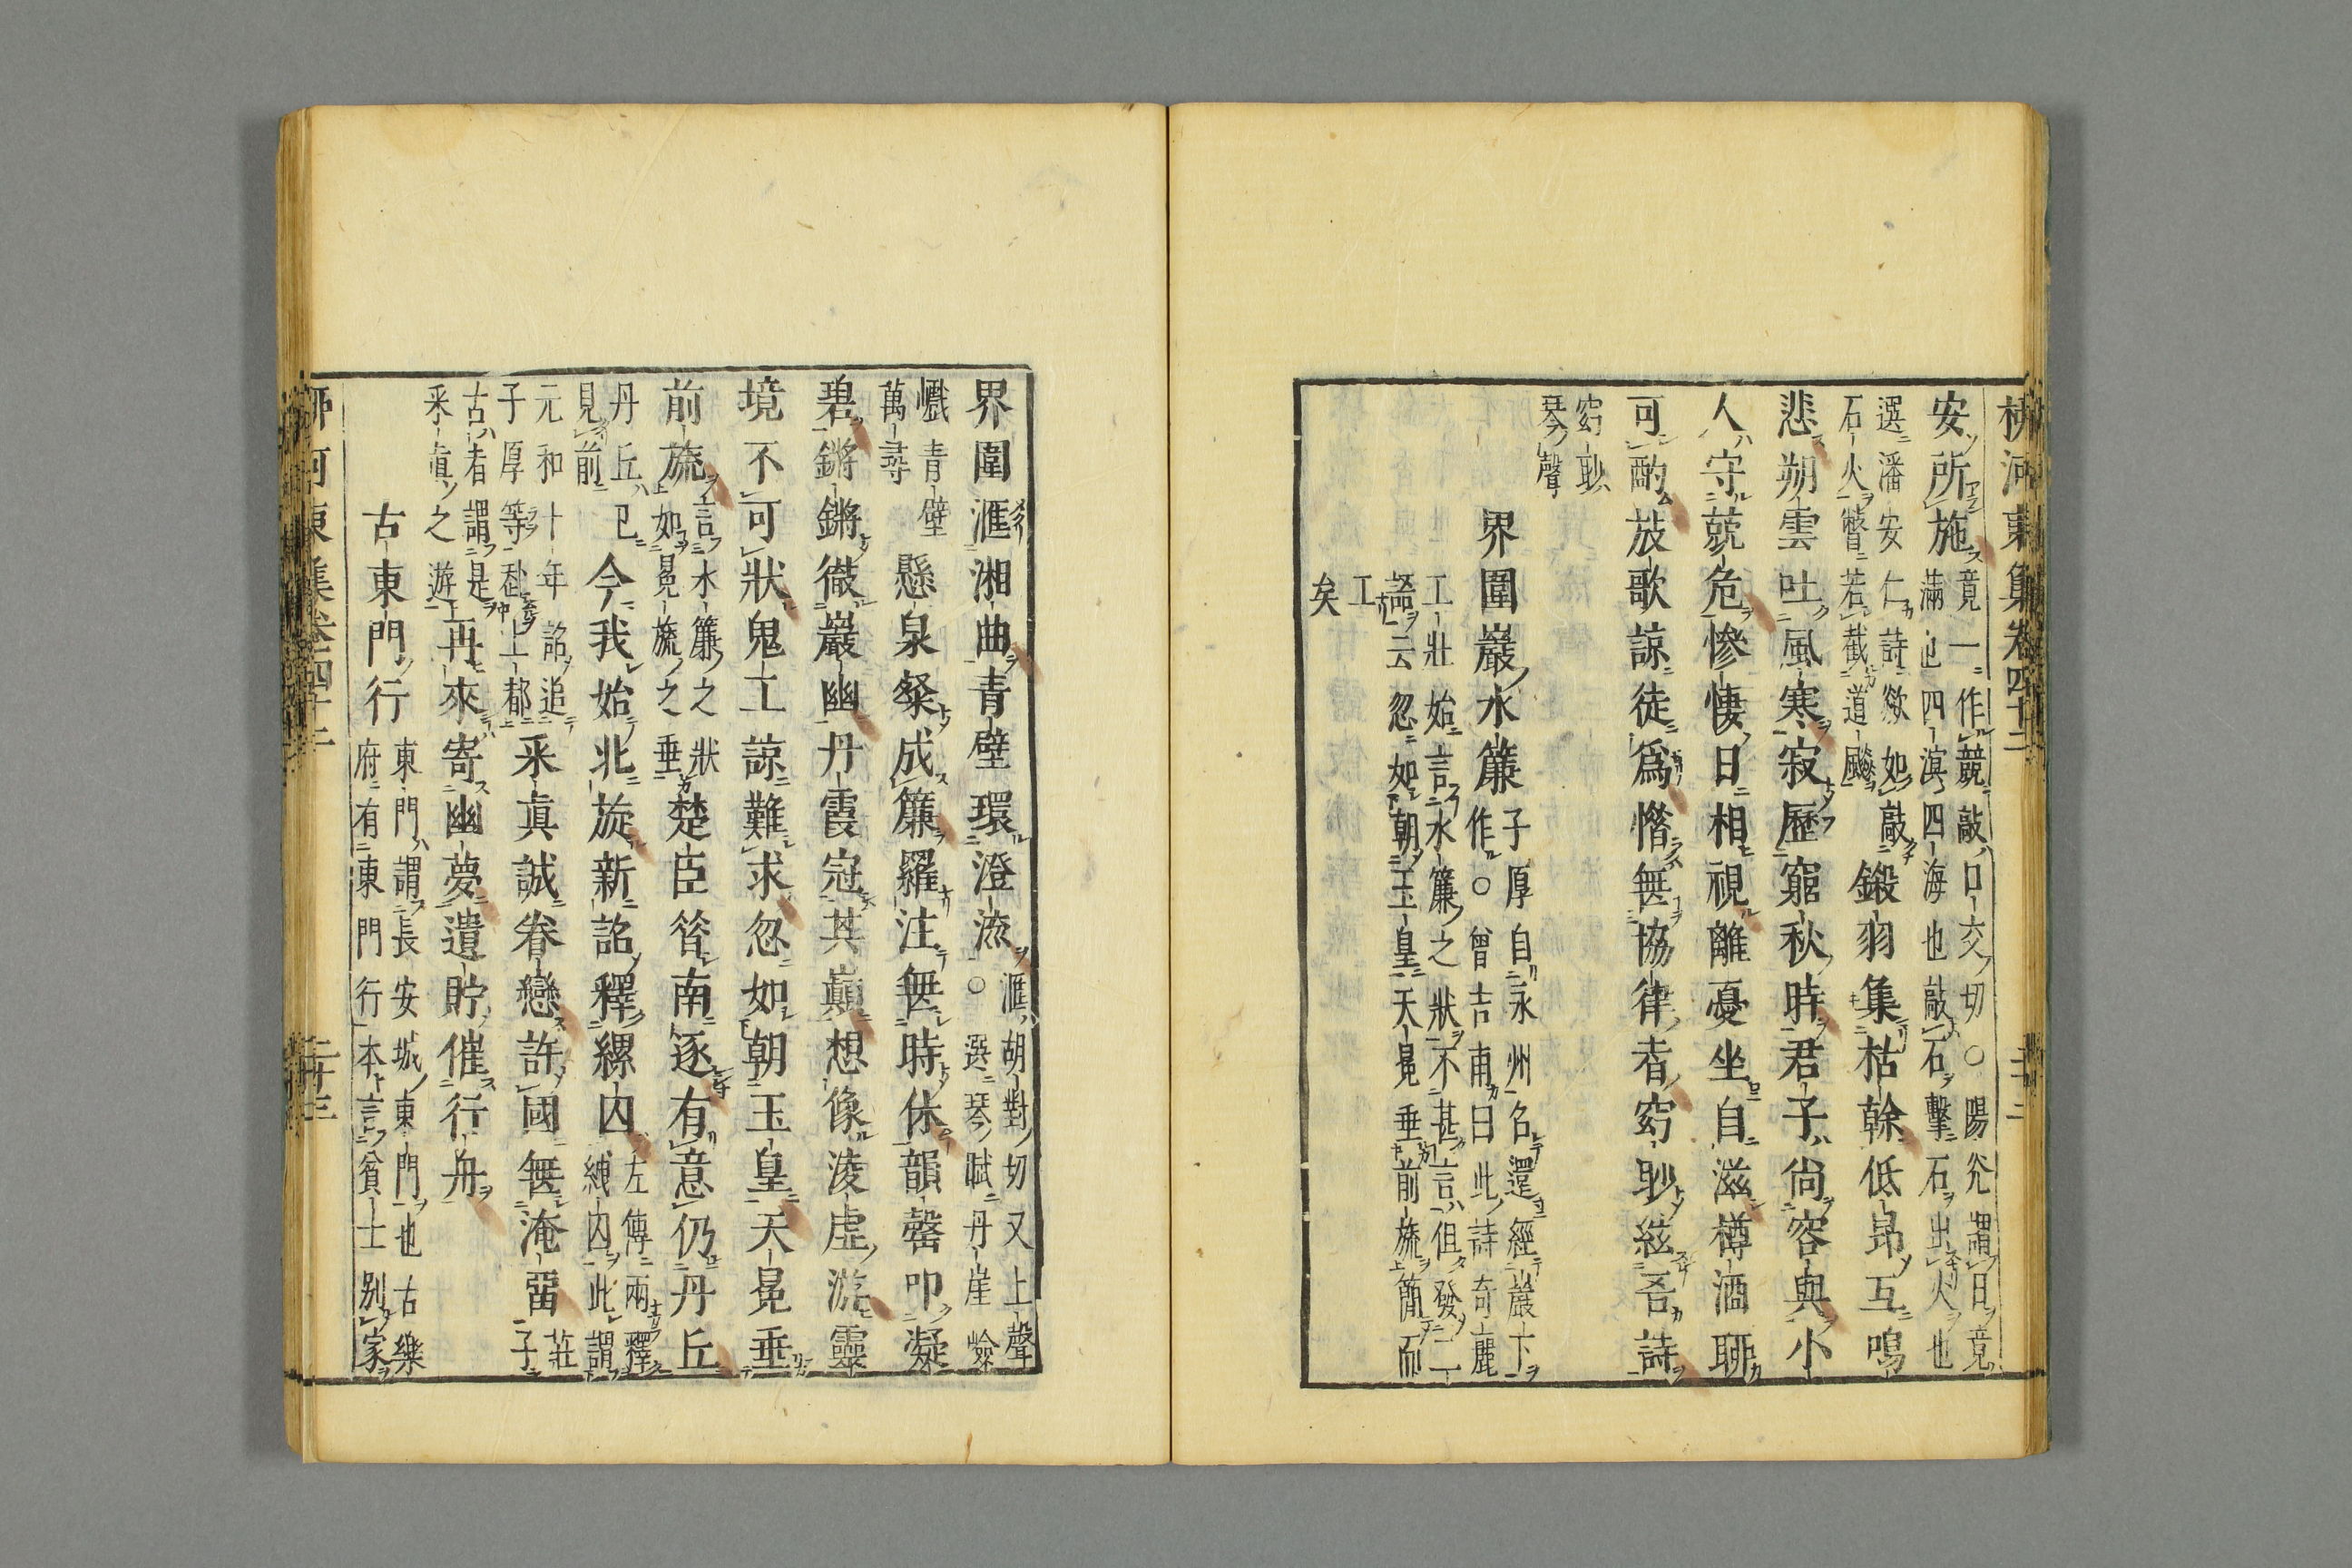 柳河東集卷四十二
安所施竟一作競敲口交切○陽父謂日竟
滿也四溟四海也敲石擊石出火也
選潘安仁詩欻如敲
石火瞥若截道飈鎩羽集枯榦低昂互鳴
悲朔雲吐風寒寂歷窮秋時君子尚容與小
人守兢危慘悽日相視離憂坐自滋樽酒聊
可酌放歌諒徒爲惜無協律者窈眇絃吾詩
窈眇
琴聲
界圍巖水簾子厚自永州名還經巖下
作○曾吉甫曰此詩奇麗
工壯始言水簾之狀不甚言但發二
語云忽如朝玉皇天冕垂前旒簡而
工
矣
界圍滙湘曲青壁環澄流滙胡對切又上聲
○選琴賦丹崖嶮
巇青壁
萬尋懸泉粲成簾羅注無時休韻磬叩凝
碧鏘鏘徹巖幽丹霞冠其巔想像淩虛游靈
境不可狀鬼工諒難求忽如朝玉皇天冕垂
前旒言水簾之狀
如冕旒之垂楚臣昔南逐有意仍丹丘
丹丘已
見前今我始北旋新詔釋縲囚左傳兩釋
縲囚此謂
元和十年詔追
子厚等赴上都采真誠眷戀許國無淹畱莊
子
古者謂是
采真之遊再來寄幽夢遺貯催行舟
古東門行東門謂長安城東門也古樂
府有東門行本言貧士别家
柳河東集卷四十二
二十三